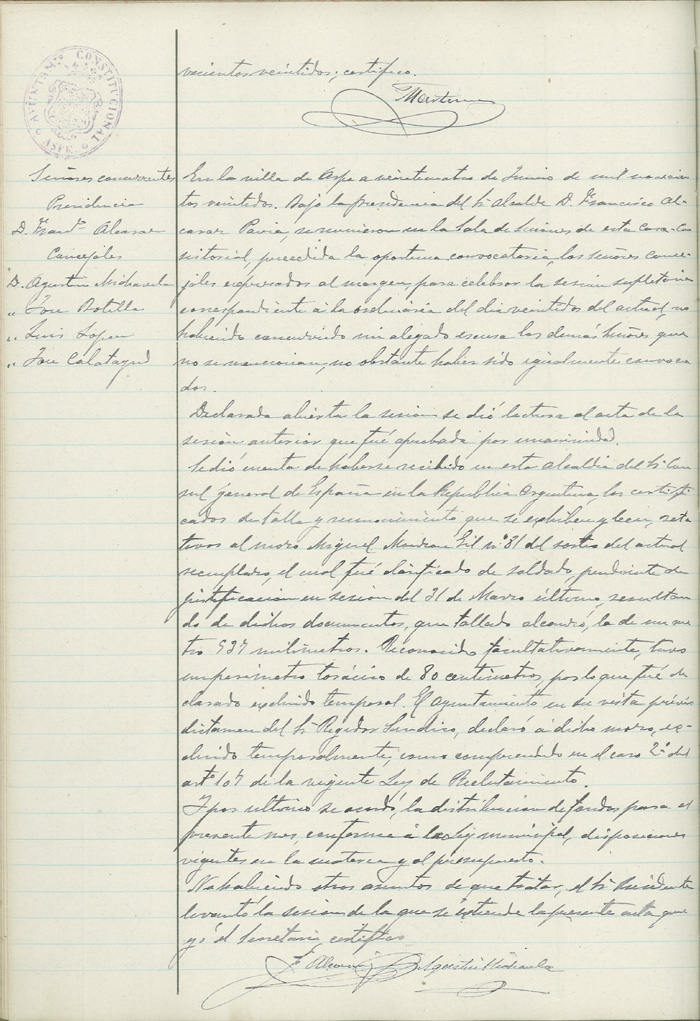 AYUNTAM. CONSTITUCIONAL
ASPE
vecientos veintidos; certifico.
Señores concurrentes
Presidencia
D. Fran.co Alcaraz
Concejales
D. Agustin Mirambell
" Jose Botella
" Luis Lopez
" Jose Calatayud
En la villa de Aspe a veinticuatro de Junio de mil novecien
tos veintidos. Bajo la presidencia del Sr. Alcalde D. Francisco Al-
caraz Pavia, se reunieron en la Sala de Sesiones de esta Casa-Con
sistorial, precedida la oportuna convocatoria, los señores conce-
jales expresados al margen, para celebrar la sesion supletoria
correspondiente á la ordinaria del dia veintidos del actual, no
habiendo concurrido ni alegado escusa los demás Señores que
no se mencionan, no obstante haber sido igualmente convoca-
dos.
Declarada abierta la sesion se dió lectura al acta de la
sesion anterior que fué aprobada por unanimidad.
Se dió cuenta de haberse recibido en esta Alcaldia del Sr. Con
sul general de España en la Republica Argentina, los certifi-
cados de talla y reconocimiento que se exhiben y leen, rela-
tivos al mozo Miguel Gil nº 31 del sorteo del actual
reemplazo, el cual fué clasificado de soldado, pendiente de
justificacion en sesion del 31 de Marzo último, resultan
do de dichos documentos, que tallado alcanzó, la de un me-
tro 537 milimetros. Reconocido facultativamente, tuvo
un perimetro torácico de 80 centimetros, por lo que fué de
clarado excluido temporal. El Ayuntamiento en su vista previo
dictamen del Sr. Regidor Sindico, declaró á dicho mozo, ex-
cluido temporalmente, como comprendido en el caso 2º del
artº 107 de la vigente Ley de Reclutamiento.
Y por ultimo se acordó, la distribucion de fondos para el
presente mes, conforme á la Ley municipal, disposiciones
vigentes en la materia y al presupuesto.
No habiendo otros asuntos de que tratar, el Sr. Presidente
levantó la sesion de la que se extiende la presente acta que
yo el Secretario, certifico.